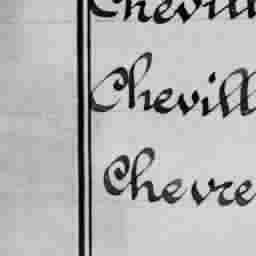 Chevill
Chevill
Chevre